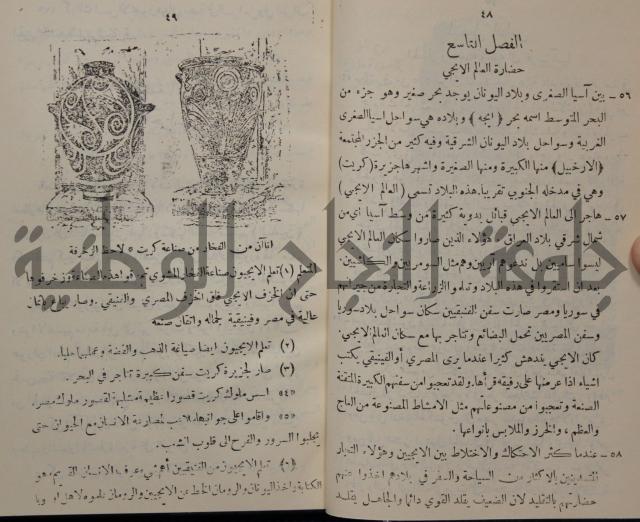 ٤٨
الفصل التاسع
حضارة العالم الايجي
٥٦ - بين آسيا الصغرى وبلاد اليونان يوجد بحر صغير وهو جزء من
البحر المتوسط اسمه بحر (ايجه) وبلاده هي سواحل اسيا الصغرى
الغربية وسواحل بلاد اليونان الشرقية وفيه كثير من الجزر المجتمعة
(الارخبيل) منها الكبيرة ومنها الصغيرة واشهرها جزيرة (كريت)
وهي في مدخله الجنوبي تقريبا. هذه البلاد تسمى (العالم الايجي)
٥٧ - هاجر الى العالم الايجي قبائل بدوية كثيرة من وسط آسيا اي من
شمال شرقي بلاد العراق، هؤلاء الذين صاروا سكان العالم الايجي
ليسوا ساميين بل ندعوهم آريين وهم مثل السومريين والكاشيين.
بعد ان استقروا في هذه البلاد وتعلموا الزراعة والتجارة من جيرانهم
في سوريا ومصر صارت سفن الفنيقيين سكان سواحل بلاد سوريا
وسفن المصريين تحمل البضائع وتتاجر بها مع سكان العالم الايجي.
كان الايجي يندهش كثيرا عندما يرى المصري أو الفنيقي يكتب
اشياء اذا عرضها على رفيقه قرأها. ولقد تعجبوا من سفنهم الكبيرة المتقنة
الصنعة وتعجبوا من مصنوعاتهم مثل الامشاط المصنوعة من العاج
والعظم، والخرز والملابس بأنواعها.
٥٨ - عندما كثر الاحتكاك والاختلاط بين الايجيين وهؤلاء التجار
المتمدنين بالاكثار من السياحة والسفر في بلادهم اخذوا عنهم
حضارتهم بالتقليد لان الضعيف يقلد القوي دائما والجاهل يقلد
٤٩
اناآن من الفخار من صناعة كريت » لاحظ الزخرفة
(١) تعلم الايجيون صناعة الفخار المشوي
حتى ان الخزف الايجي فاق الخزف المصري والفنيقي . وصار
عالية في مصر وفينيقية لجماله واتقان صنعه
(٢) تعلم الايجيون ايضا صياغة الذهب والفضة وعملهما حليا.
(٣) صار لجزيرة كريت سفن كبيرة تتاجر في البحر.
«٤» اسس ملوك كريت قصورا عظيمة مشابهة لقصور ملوك مصر.
«٥» واقاموا على جوانبها ملاعب لمصارعة الانسان مع الحيوان حتى
يجلبوا السرور والفرح الى قلوب الشعب.
(٦) تعلم الايجيون من الفنيقيين
الكتابة واخذ اليونان والرومان الخط عن الايجيين والرومان
جامعة النجاح الوطنية